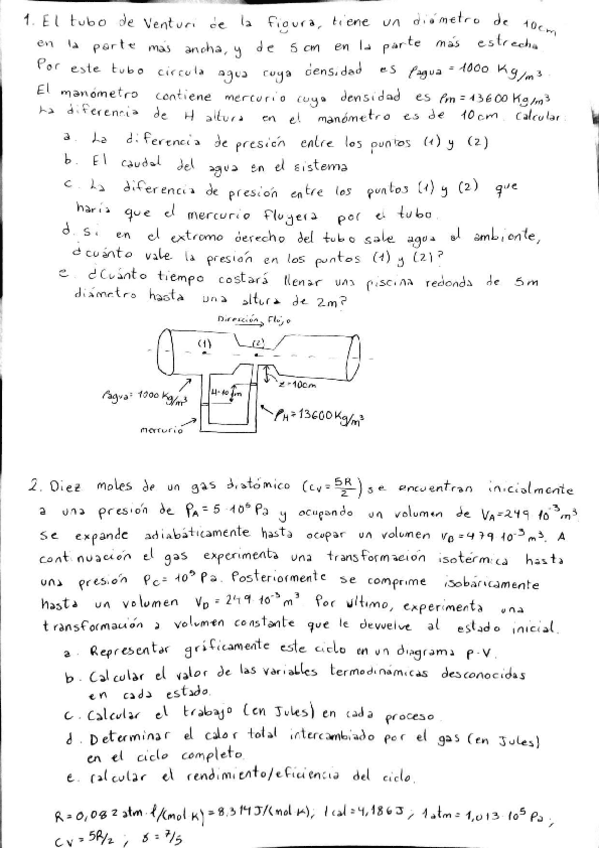 1. El tubo de Venturi de la figura, tiene un diámetro de 10cm
en la parte más ancha, y de 5 cm en la parte más estrecha
Por este tubo circula agua cuya densidad es ρagua = 1000 Kg/m³
El manómetro contiene mercurio cuya densidad es ρm = 13600 Kg/m³
La diferencia de H altura en el manómetro es de 10cm. calcular:
a. La diferencia de presión entre los puntos (1) y (2)
b. El caudal del agua en el sistema
c. La diferencia de presión entre los puntos (1) y (2) que
haría que el mercurio fluyera por el tubo.
d. Si en el extremo derecho del tubo sale agua al ambiente,
¿cuánto vale la presión en los puntos (1) y (2)?
e. ¿Cuánto tiempo costará llenar una piscina redonda de 5m
diámetro hasta una altura de 2m?
Dirección Flujo
(1) (2)
ρagua = 1000 Kg/m³
H=10cm
z=10cm
ρH = 13600 Kg/m³
mercurio
2. Diez moles de un gas diatómico (cv = 5R/2) se encuentran inicialmente
a una presión de PA = 5·10⁵ Pa y ocupando un volumen de VA = 249 10⁻³ m³
Se expande adiabáticamente hasta ocupar un volumen VB = 479 10⁻³ m³. A
continuación el gas experimenta una transformación isotérmica hasta
una presión Pc = 10⁵ Pa. Posteriormente se comprime isobáricamente
hasta un volumen VD = 249·10⁻³ m³. Por último, experimenta una
transformación a volumen constante que le devuelve al estado inicial.
a. Representar gráficamente este ciclo en un diagrama p-V.
b. Calcular el valor de las variables termodinámicas desconocidas
en cada estado.
c. Calcular el trabajo (en Jules) en cada proceso.
d. Determinar el calor total intercambiado por el gas (en Jules)
en el ciclo completo.
e. calcular el rendimiento/eficiencia del ciclo.
R = 0,082 atm·l/(mol K) = 8,314 J/(mol K); 1 cal = 4,186 J; 1 atm = 1,013·10⁵ Pa;
Cv = 5R/2; 8 = 7/5